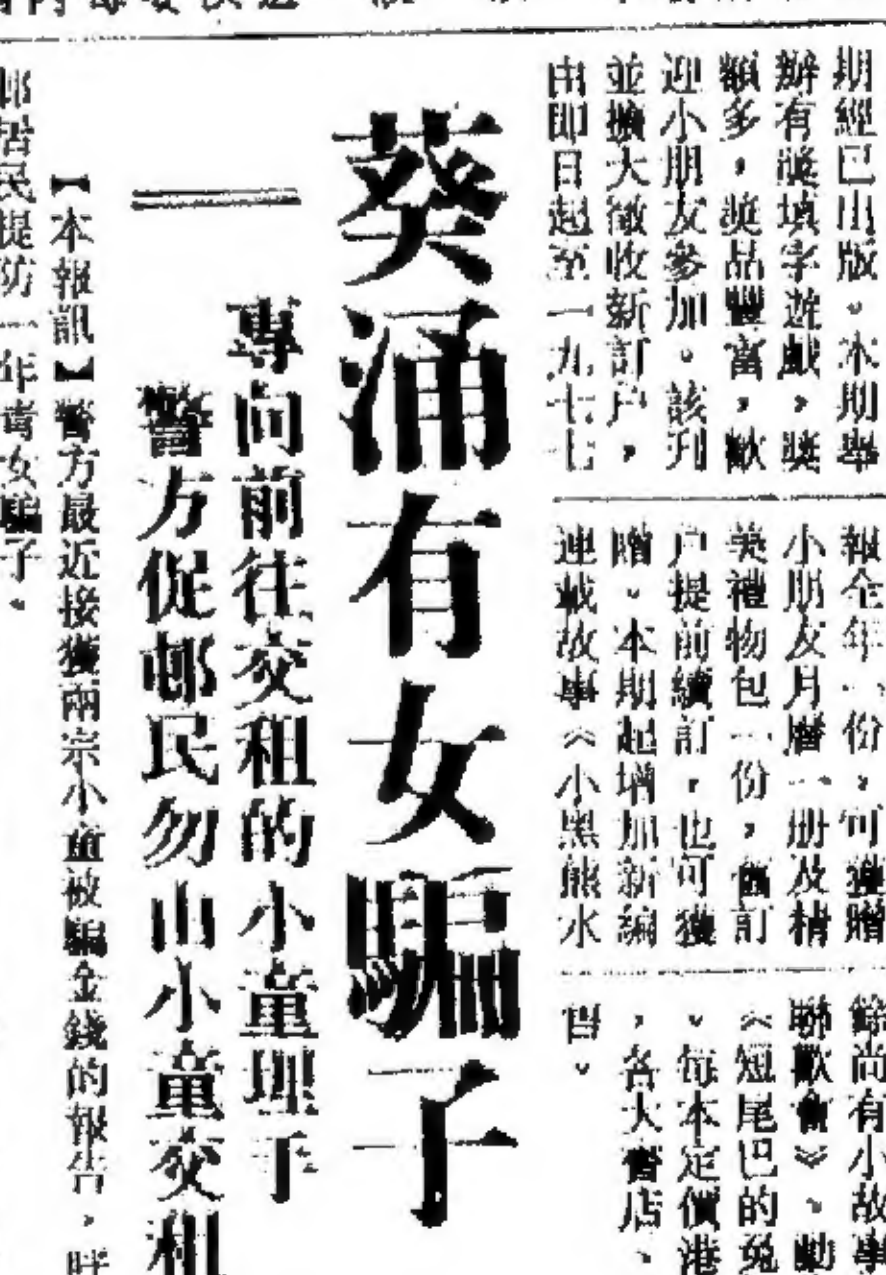 期經已出版。本期舉
辦有獎填字遊戲,獎
額多,獎品豐富,歡
迎小朋友參加。該刊
並擴大徵收新訂戶,
由即日起至一九七七
報全年一份,可獲贈
小朋友月曆一册及精
美禮物包一份,舊訂
户提前續訂,也可獲
贈。本期起增加新編
連載故事《小黑熊水
餘尚有小故事
聯歡會》、動
《短尾巴的兔
。每本定價港
,各大書店、
售。
葵涌有女騙子
專向前往交租的小童埋手
警方促邨民勿由小童交租
【本報訊】警方最近接獲兩宗小童被騙金錢的報告,呼
邨居民提防一年靑女騙子。